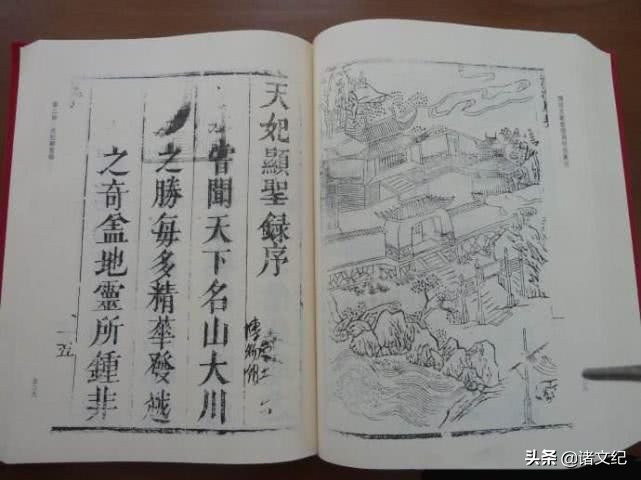 天妃顯聖錄序
嘗聞天下名山大川
之勝每多精華發越
之奇盖地靈所鍾非
一五
头条 @诸文纪